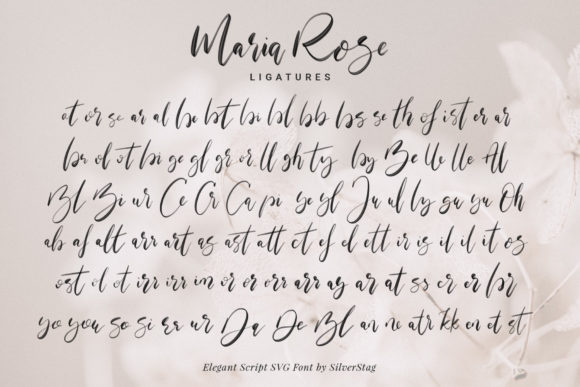 Maria Rose
LIGATURES
et or sc ar al be bt bi bl bb bs se th of ist er ar
br ol ot bi ge gl gr or ll gh ty by Be lle lle Al
Bl Bi ur Ce Cr Ca pi ye yl Ju ul ly ga ya Oh
ab af alt arr art as ast att ct ef el ett ir is il il it os
ost ol ot irr irr im or er err arr ay ar at ss er er br
yo you so si rr ur Da De Bl an ne atr kk en et st
Elegant Script SVG Font by SilverStag